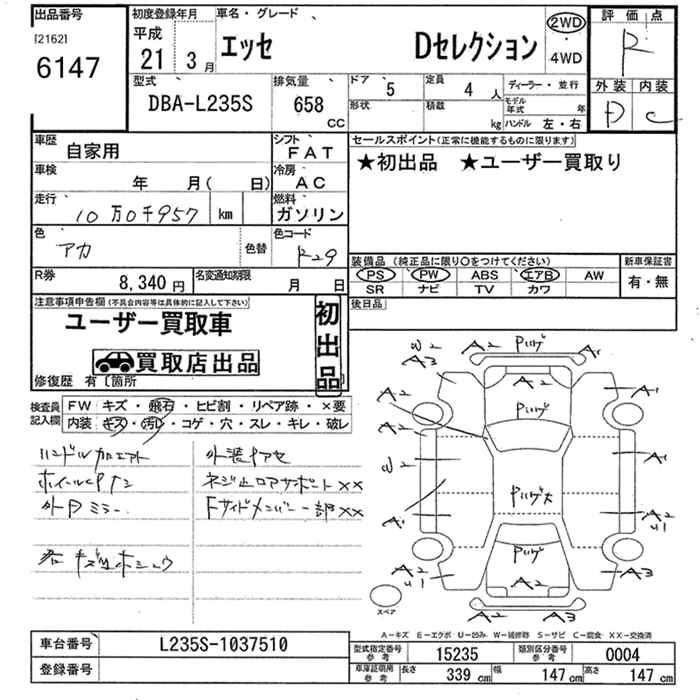 出品番号 初度登録年月 車名・グレード 2WD 評価点
[2162] 平成
6147 21年 3月 エッセ Dセレクション ・4WD R
型式 排気量 ドア 5 定員 4人 ディーラー・並行 外装 内装
DBA-L235S 658 cc 形状 積載 kg モデル年式 年 D C
ハンドル 左・右
車歴 自家用 シフト FAT セールスポイント(正常に機能するものに限ります)
車検 年 月( 日) 冷房 AC ★初出品 ★ユーザー買取り
走行 10万0千957 km 燃料 ガソリン
色 アカ 色替 色コード R29
装備品 (純正品に限り○をつけてください) 新車保証書
PS ・ PW ・ ABS ・ エアB ・ AW 有・無
R券 8,340円 名変通知期限 月 日 SR ナビ TV カワ
注意事項申告欄(不具合内容等は具体的に記入して下さい) 後日品
ユーザー買取車 初出品
買取店出品
修復歴 有〔箇所
検査員記入欄 FW キズ・飛石・ヒビ割・リペア跡・×要
内装 キズ・汚レ・コゲ・穴・スレ・キレ・破レ
ハンドル
外装ヤアセ
ネジ止ロアサポートXX
外Dミラー
Fサイドメンバー一部XX
W2 A2 Pハゲ A1
A3 A2
A2 Pハゲ A1
A2
W2 A1
Pハゲ大
A1 A2
U1
Pハゲ
A2 A2 A3
U1
A2 A3
スペア
A-キズ E-エクボ U-凹み W-補修跡 S-サビ C-腐食 XX-交換済
車台番号 L235S-1037510 型式指定番号 参考 15235 類別区分番号 参考 0004
登録番号 車庫証明用 参考 長さ 339 cm 幅 147 cm 高さ 147 cm